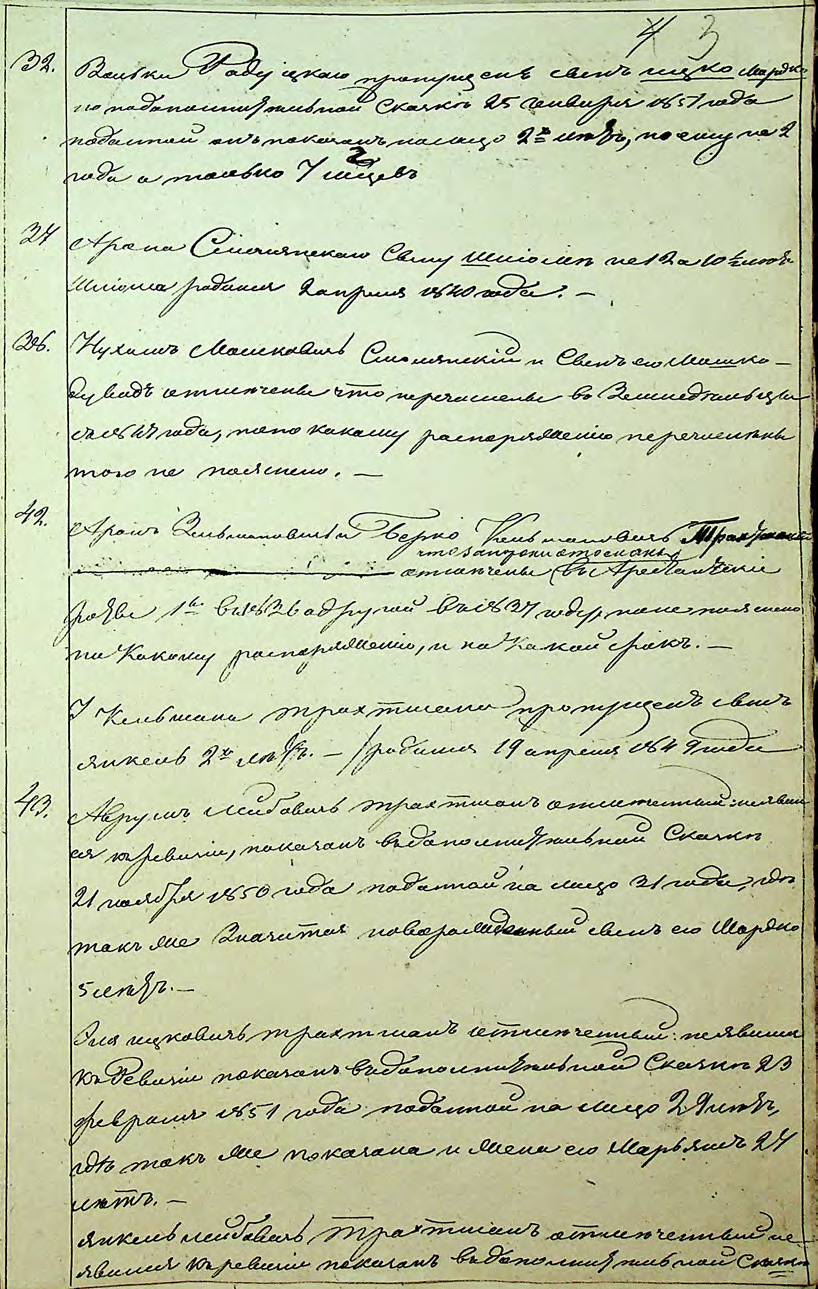 4 3
32. Вольки Радуцкаго пропущенъ сынъ Ицко Мордк
по дополнительной Сказкѣ 25 января 1851 года
поданной онъ показанъ на лицо 2хъ лѣтъ, но ему не 2
года а только 7 мѣсяцевъ
34 Арона Смолянскаго Сыну Шліомѣ не 12 а 10½ лѣтъ
Шліома родился 2 апреля 1840 года. —
36. Нухимъ Мошковичъ Смолянскій и Сынъ его Мошко-
Дувидъ отмечены что перечислены во Земледѣльцы
съ 184 года, но по какому распоряженію перечислены
того не пояснено. —
42. Аронъ Зельмановичъ и Берко Кельмановичъ Трахтманы
что за пороки отосланы
отмечены въ Арестантскіе
роты 1й въ 1836 а другой въ 1837 году, но не пояснено
по Какому распоряженію, и на Какой срокъ. —
У Кельмана Трахтмана пропущенъ сынъ
Янкель 2хъ лѣтъ. — /родился 19 апреля 1849 года
43. Аврумъ Лейбовичъ Трахтманъ отмеченный: неявил
ся къ ревизіи, показанъ въ дополнительной Сказкѣ
21 ноября 1850 года поданной на лицо 31 года, гдѣ
такъ же Значится новорожденный сынъ его Мордко
5 лѣтъ. —
Ицковичъ Трахтманъ отмеченный: неявился
къ Ревизіи показанъ въ дополнительной Сказкѣ 23
февраля 1851 года поданной на лицо 29 лѣтъ,
гдѣ такъ же показана и жена его Марьямъ 24
лѣтъ. —
Янкель Лейбовичъ Трахтманъ отмеченный не-
явился къ ревизіи показанъ въ дополнительной Сказкѣ